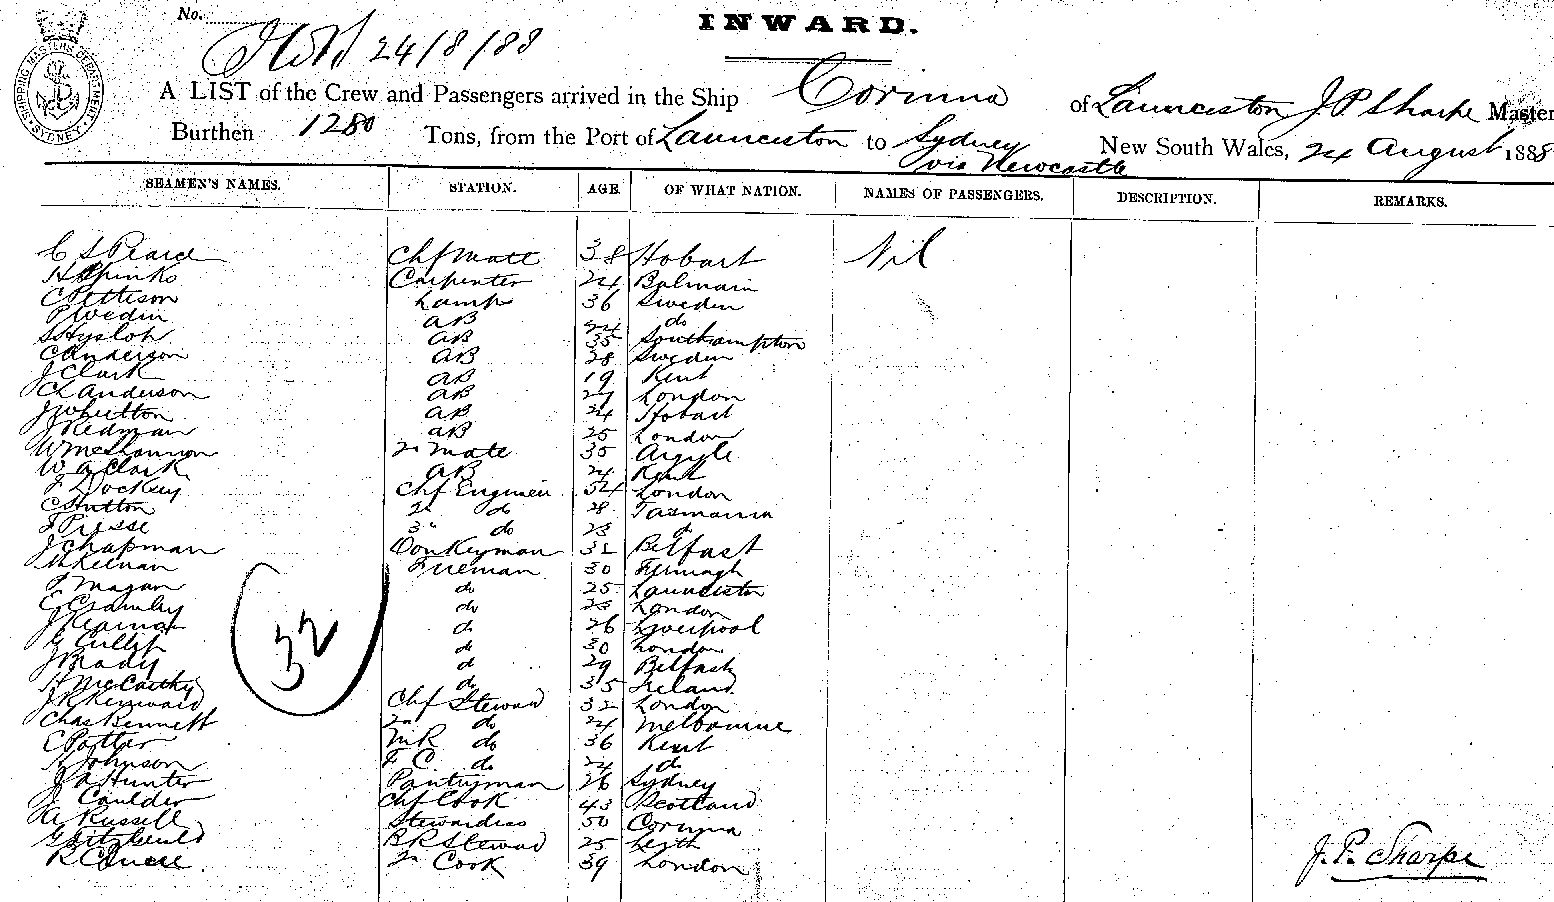 No.
INWARD.
24/8/88
SHIPPING MASTERS DEPARTMENT SYDNEY
A LIST of the Crew and Passengers arrived in the Ship Corinna of Launceston J. P. Sharpe Master
Burthen 1280 Tons, from the Port of Launceston to Sydney New South Wales, 24 August 1888
via Newcastle
SEAMEN'S NAMES. STATION. AGE. OF WHAT NATION. NAMES OF PASSENGERS. DESCRIPTION. REMARKS.
C S Peard Chf Mate 38 Hobart Nil
H Spinks Carpenter 24 Balmain
C Pettison Lamps 36 Sweden
P Wedin AB 24 do
S Hyslop AB 35 Southampton
C Anderson AB 28 Sweden
J Clark AB 19 Kent
C L Anderson AB 27 London
J Whutton AB 24 Hobart
J Redman AB 25 London
W McShannon 2n Mate 35 Argyle
W A Clark AB 24 Kent
J Dockey Chf Engineer 34 London
C Hutton 2n do 28 Tasmania
F Piesse 3" do 23 d
J Chapman Donkeyman 32 Belfast
M Keenan Fireman 30
F Magan do 25 Launceston
E Cramley do 23 London
J Kearnan do 26 Liverpool
G do 30 London
J Brady do 29 Belfast
H McCarthy do 35 Ireland
32
J R Chf Steward 32 London
Chas Bennett 2n do 24 Melbourne
C Potter M R do 36 Kent
Johnson F C do 24 do
J A Hunter Pantryman 26 Sydney
J Caulder Chf Cook 43 Scotland
Russell Stewardess 50 Corunna
G Fitzgerald B R Steward 25 Leith
R C 2n Cook 39 London
J. P. Sharpe